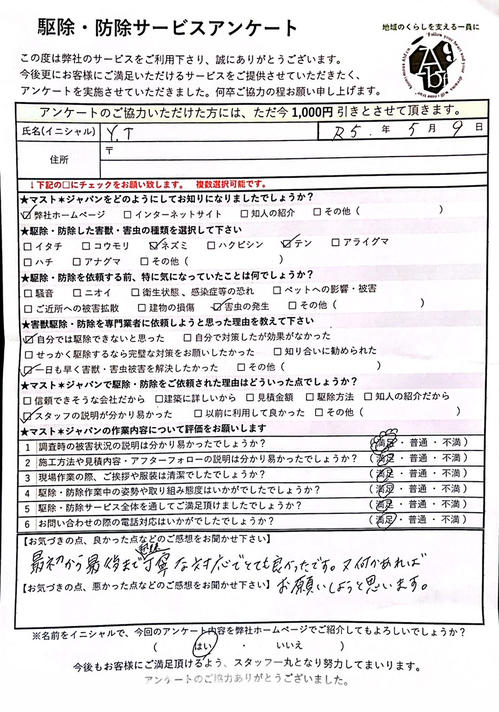 駆除・防除サービスアンケート
地域のくらしを支える一員に
この度は弊社のサービスをご利用下さり、誠にありがとうございます。
今後更にお客様にご満足いただけるサービスを提供させていただきたく、
アンケートを実施させていただきました。何卒ご協力の程お願い申し上げます。
アンケートのご協力いただけた方には、ただ今1,000円引きとさせて頂きます。
氏名(イニシャル) Y.T R5.年 5月 9日
住所 〒
↓下記の□にチェックをお願い致します。 複数選択可能です。
★マスト*ジャパンをどのようにしてお知りになりましたでしょうか?
☑弊社ホームページ □インターネットサイト □知人の紹介 □その他( )
★駆除・防除した害獣・害虫の種類を選択して下さい
□イタチ □コウモリ ☑ネズミ □ハクビシン ☑テン □アライグマ
□ハチ □アナグマ □その他( )
★駆除・防除を依頼する前、特に気になっていたことは何でしょうか?
□騒音 □ニオイ □衛生状態、感染症等の恐れ □ペットへの影響・被害
□ご近所への被害拡散 □建物の損傷 ☑害虫の発生 □その他( )
★害獣駆除・防除を専門業者に依頼しようと思った理由を教えて下さい
☑自分では駆除できないと思った □自分で対策したが効果がなかった
□せっかく駆除するなら完璧な対策をお願いしたかった □知り合いに勧められた
☑一日も早く害獣・害虫被害を解決したかった □その他( )
★マスト*ジャパンで駆除・防除をご依頼された理由はどういった点でしょうか?
□信頼できそうな会社だから □建築に詳しいから □見積金額 □駆除方法 □知人の紹介だから
☑スタッフの説明が分かり易かった □以前に利用して良かった □その他( )
★マスト*ジャパンの作業内容について評価をお願いします
1 調査時の被害状況の説明は分かり易かったでしょうか? (満足・普通・不満)
2 施工方法や見積内容・アフターフォローの説明は分かり易かったでしょうか? (満足・普通・不満)
3 現場作業の際、ご挨拶や服装は清潔でしたでしょうか? (満足・普通・不満)
4 駆除・防除作業中の姿勢や取り組み態度はいかがでしたでしょうか? (満足・普通・不満)
5 駆除・防除サービス全体を通してご満足頂けましたでしょうか? (満足・普通・不満)
6 お問い合わせの際の電話対応はいかがでしたでしょうか? (満足・普通・不満)
【お気づきの点、良かった点などのご感想をお聞かせ下さい】
最初から最後まで丁寧な対応でとても良かったです。又何かあれば
【お気づきの点、悪かった点などのご感想をお聞かせ下さい】 お願いしようと思います。
※名前をイニシャルで、今回のアンケート内容を弊社ホームページでご紹介してもよろしいでしょうか?
( はい ・ いいえ )
今後もお客様にご満足頂けるよう、スタッフ一丸となり努力してまいります。
アンケートのご協力ありがとうございました。